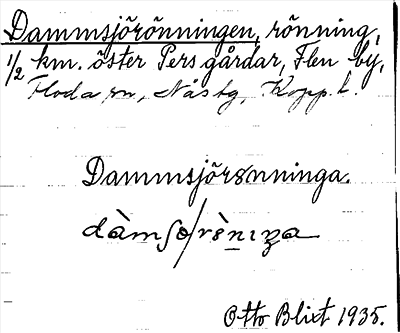 Dammsjörönningen, rönning,
1/2 km. öster Pers gårdar, Flen by,
Floda sn, Nås tg, Kopp. l.
Dammsjörönninga.
Otto Blixt 1935.